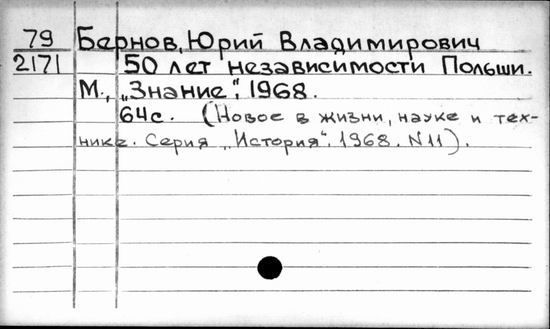 79 Бернов, Юрий Владимирович
2171 50 лет независимости Польши.
М., „Знание“, 1968.
64с. (Новое в жизни, науке и тех-
нике. Серия „История“. 1968. N11).